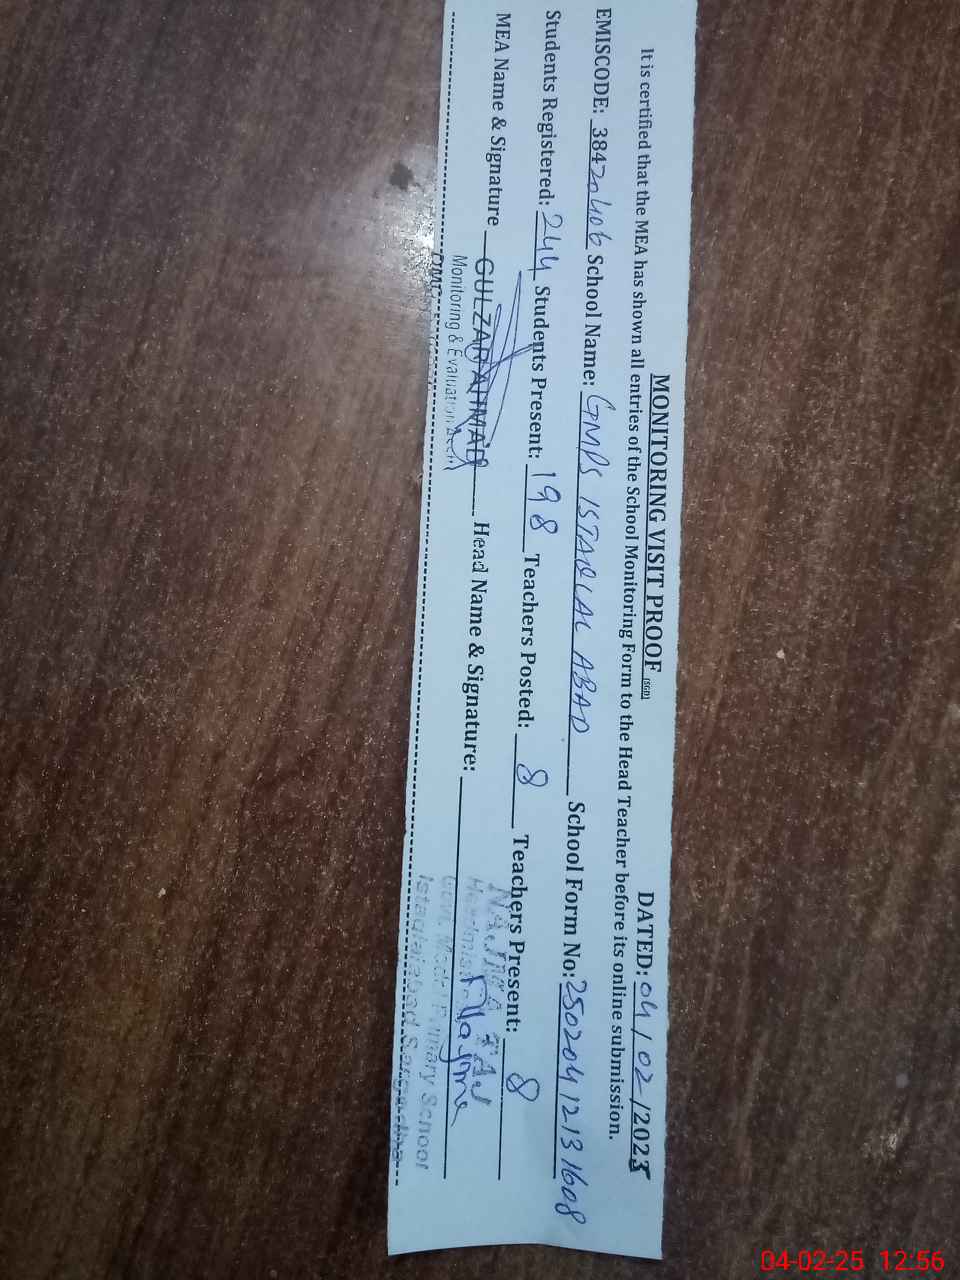 MONITORING VISIT PROOF (SGD) DATED: 04/02/2025
It is certified that the MEA has shown all entries of the School Monitoring Form to the Head Teacher before its online submission.
EMISCODE: 38420406 School Name: GMPS ISTAQLAL ABAD School Form No: 25020412131608
Students Registered: 244 Students Present: 198 Teachers Posted: 8 Teachers Present: 8
MEA Name & Signature GULZAR AHMAD Head Name & Signature:
Monitoring & Evaluation
Govt. Model Primary School
Istaqlalabad Sargodha
04-02-25 12:56